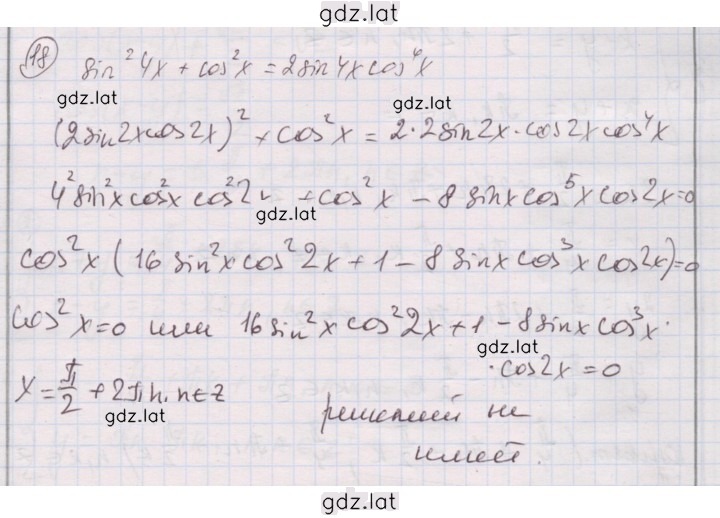 gdz.lat
18 sin²4x + cos²x = 2sin4x cos⁴x
gdz.lat gdz.lat
(2sin2xcos2x)² + cos²x = 2·2sin2x·cos2xcos⁴x
4²sin²xcos²x cos²2 + cos²x - 8sinxcos⁵xcos2x=0
gdz.lat
cos²x(16sin²xcos²2x+1-8sinxcos³xcos2x)=0
cos²x=0 или 16sin²xcos²2x+1-8sinxcos³x·
gdz.lat
·cos2x=0
x=π/2+2πn, n∈Z
gdz.lat
решений не
имеет.
gdz.lat